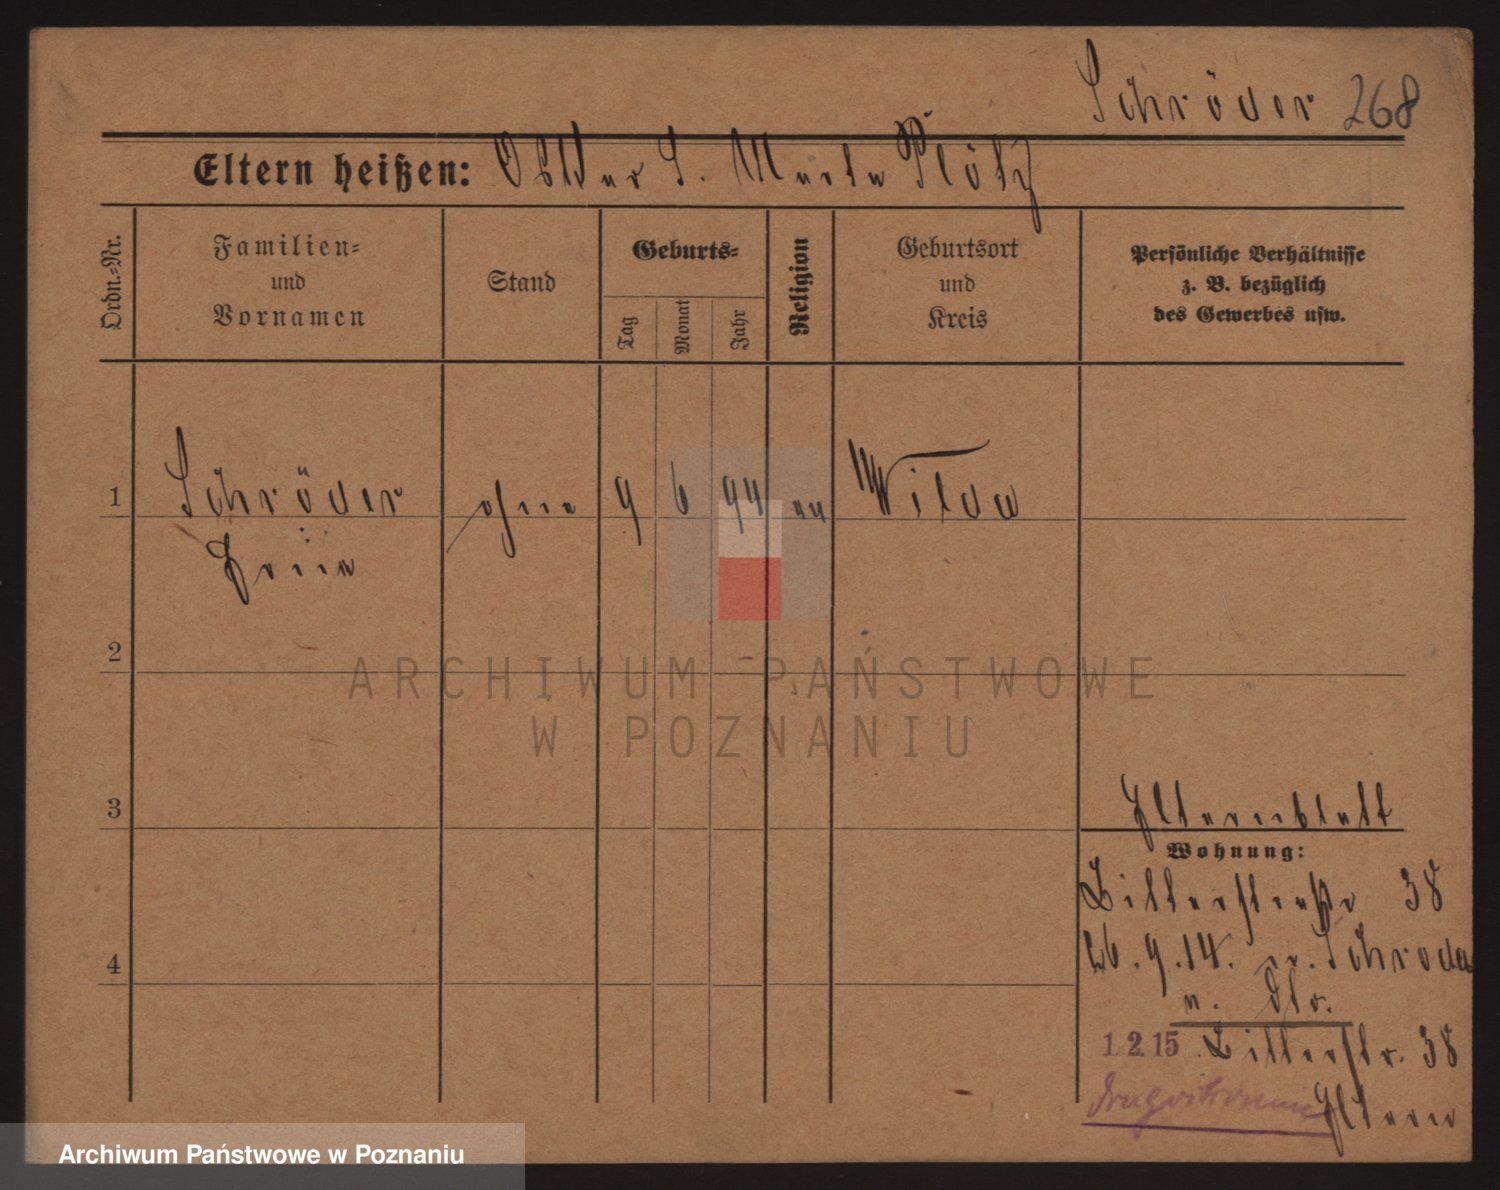 Schröder 268
Eltern heißen: Ottkar S. Marta Plötz
Ordn.=Nr.
Familien=
und
Vornamen
Stand
Geburts=
Tag
Monat
Jahr
Religion
Geburtsort
und
Kreis
Persönliche Verhältnisse
z. B. bezüglich
des Gewerbes usw.
1 Schröder ohne 9 6 94 Wilda
2
ARCHIWUM PAŃSTWOWE
W POZNANIU
3 Elternblatt
Wohnung:
Bitterstraße 38
26.9.14. n. Schroda
4
1.2.15 Bitterstr. 38
Eltern
Archiwum Państwowe w Poznaniu